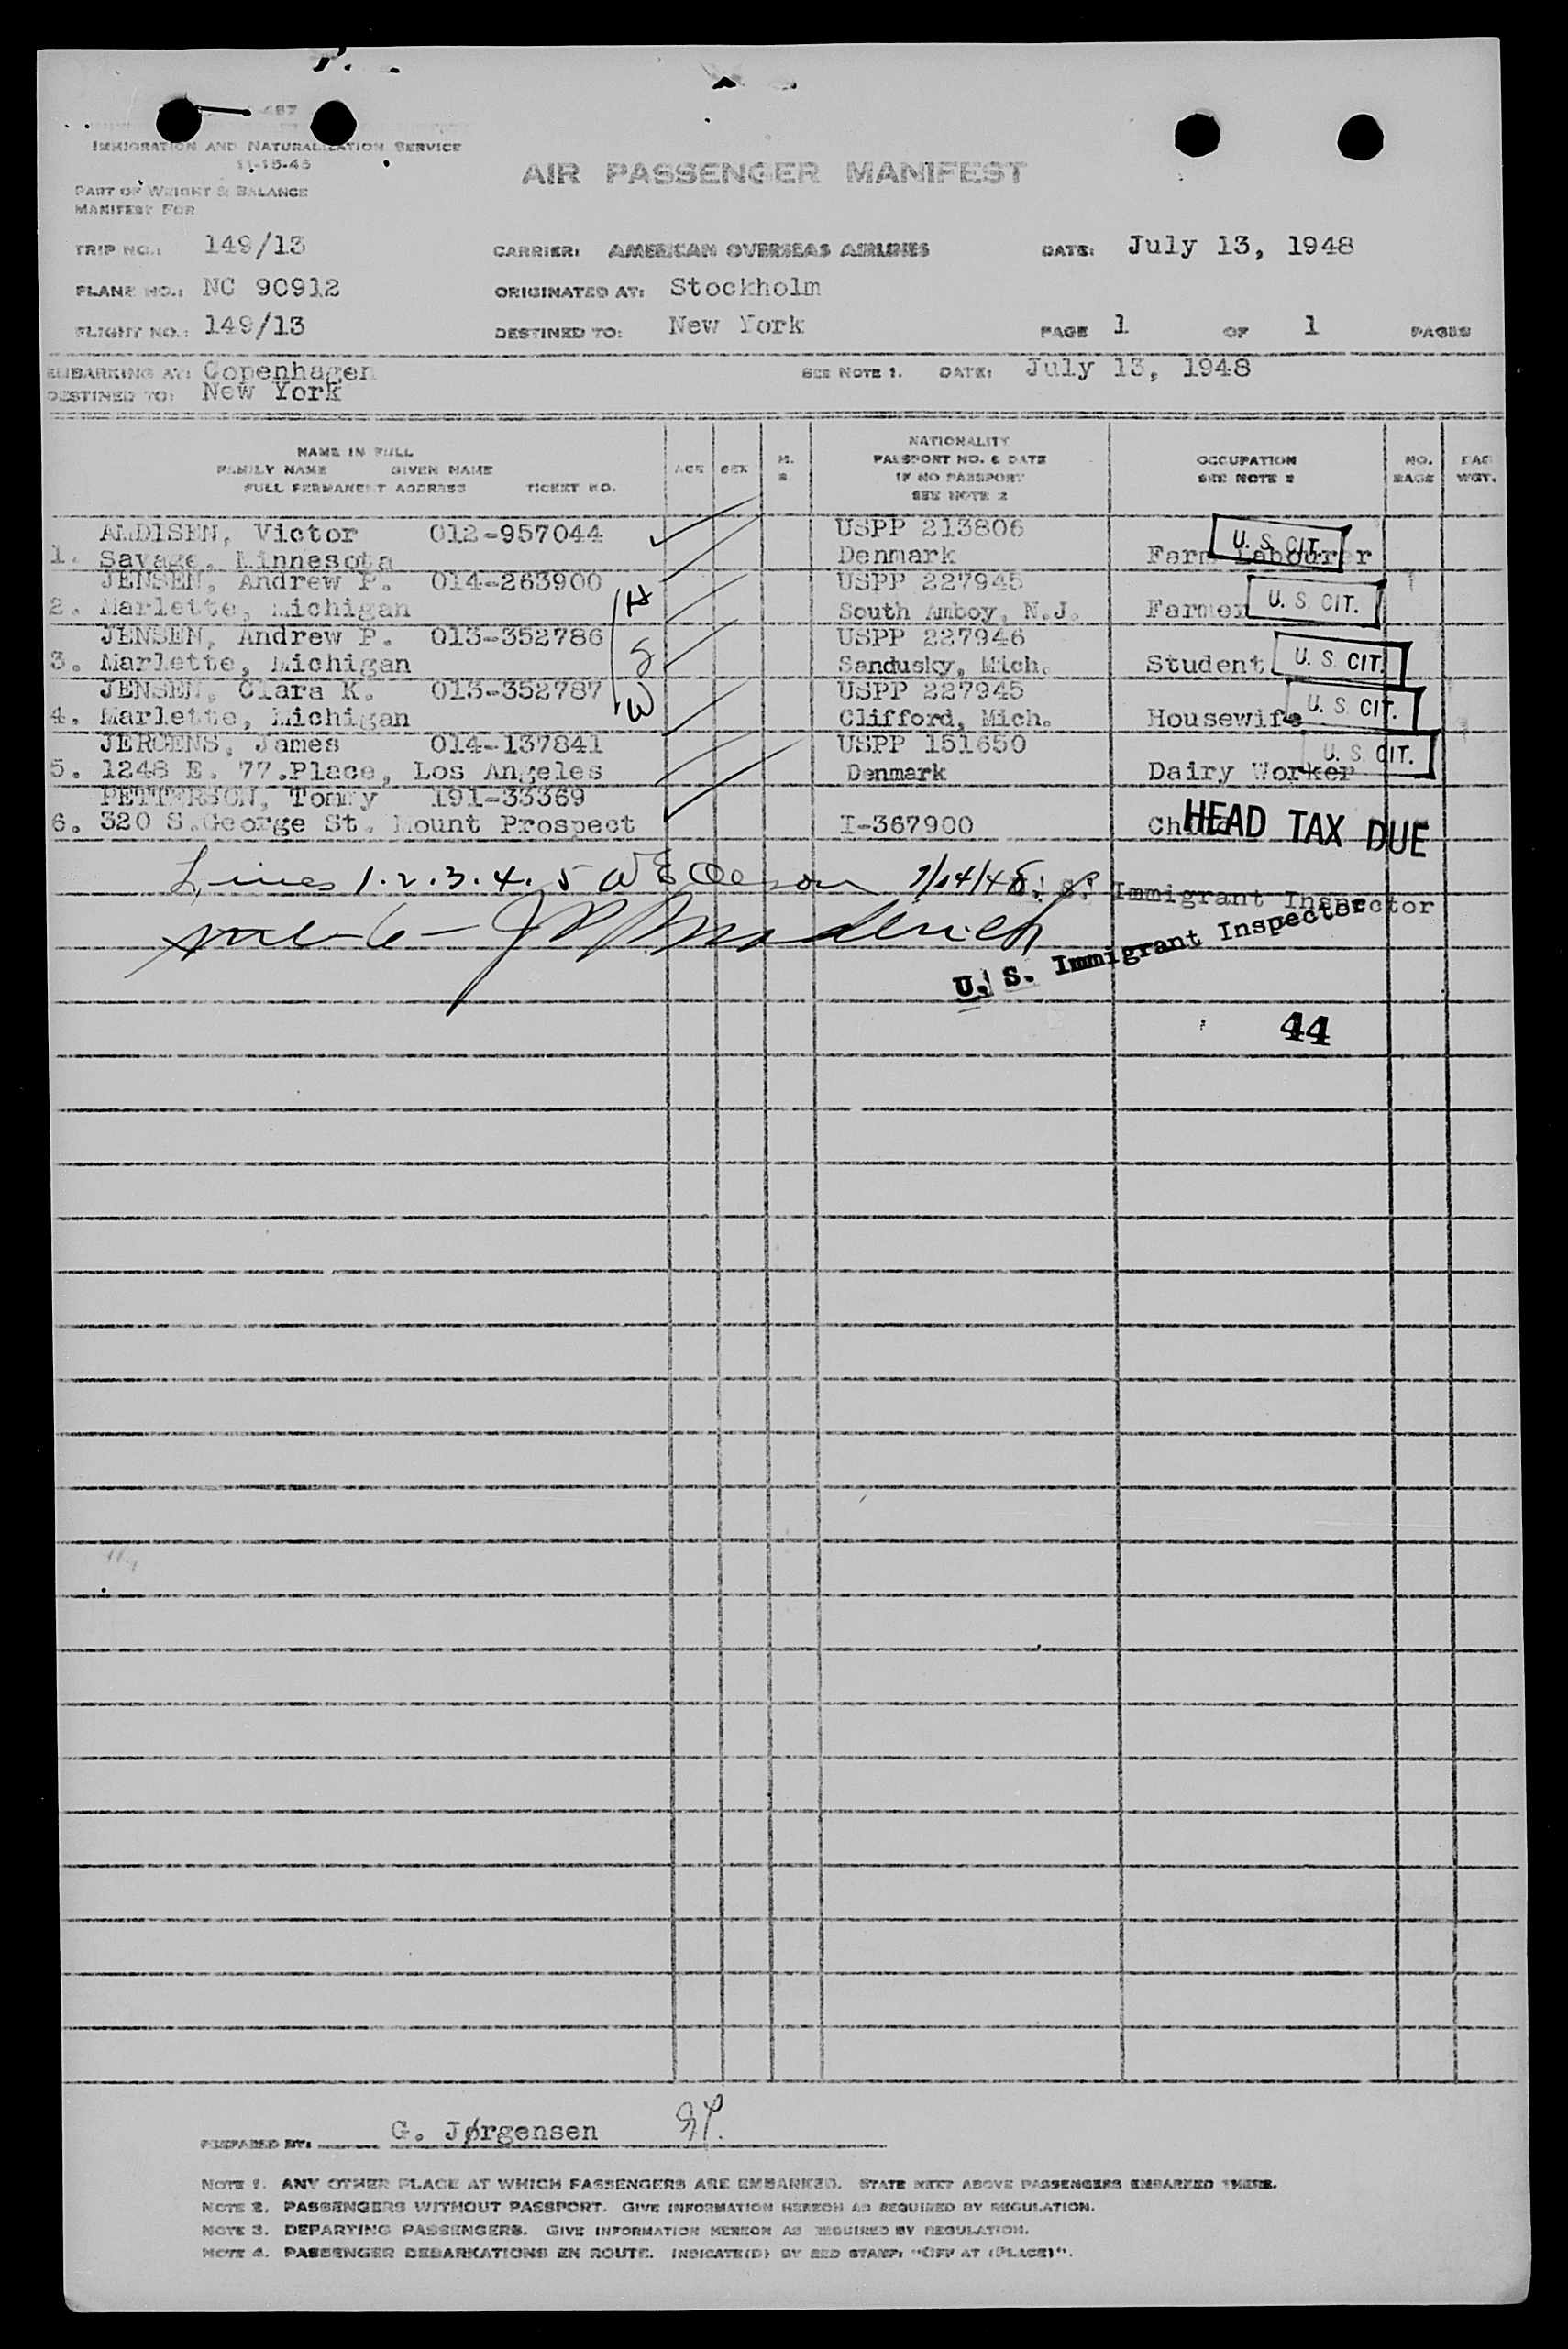 487
IMMIGRATION AND NATURALIZATION SERVICE
11-15-45
PART OF WEIGHT & BALANCE
MANIFEST FOR
AIR PASSENGER MANIFEST
TRIP NO.: 149/13 CARRIER: AMERICAN OVERSEAS AIRLINES DATE: July 13, 1948
PLANE NO.: NC 90912 ORIGINATED AT: Stockholm
FLIGHT NO.: 149/13 DESTINED TO: New York PAGE 1 OF 1 PAGES
EMBARKING AT: Copenhagen SEE NOTE 1. DATE: July 13, 1948
DESTINED TO: New York
NAME IN FULL
FAMILY NAME GIVEN NAME
FULL PERMANENT ADDRESS TICKET NO.
AGE SEX M. S.
NATIONALITY
PASSPORT NO. & DATE
IF NO PASSPORT
SEE NOTE 2
OCCUPATION
SEE NOTE 2
NO. BAGS
BAG WGT.
Victor 012-957044 USPP 213806 U. S. CIT.
1. Savage, Minnesota Denmark Farm Labourer
JENSEN, Andrew P. 014-263900 USPP 227945
2. Marlette, Michigan H South Amboy, N.J. Farmer U. S. CIT.
JENSEN, Andrew P. 013-352786 USPP 227946
3. Marlette, Michigan S Sandusky, Mich. Student U. S. CIT.
JENSEN, Clara K. 013-352787 USPP 227945
4. Marlette, Michigan W Clifford, Mich. Housewife U. S. CIT.
JERGENS, James 014-137841 USPP 151650
5. 1248 E. 77.Place, Los Angeles Denmark Dairy Worker U. S. CIT.
PETTERSON, Tommy 191-33369
6. 320 S.George St. Mount Prospect I-367900 Child HEAD TAX DUE
Lines 1.2.3.4.5 7/14/48 U. S. Immigrant Inspector
U. S. Immigrant Inspector
44
PREPARED BY: G. Jørgensen
NOTE 1. ANY OTHER PLACE AT WHICH PASSENGERS ARE EMBARKED. STATE NEXT ABOVE PASSENGERS EMBARKED THERE.
NOTE 2. PASSENGERS WITHOUT PASSPORT. GIVE INFORMATION HEREON AS REQUIRED BY REGULATION.
NOTE 3. DEPARTING PASSENGERS. GIVE INFORMATION HEREON AS REQUIRED BY REGULATION.
NOTE 4. PASSENGER DEBARKATIONS EN ROUTE. INDICATE(D) BY RED STAMP: "OFF AT (PLACE)".